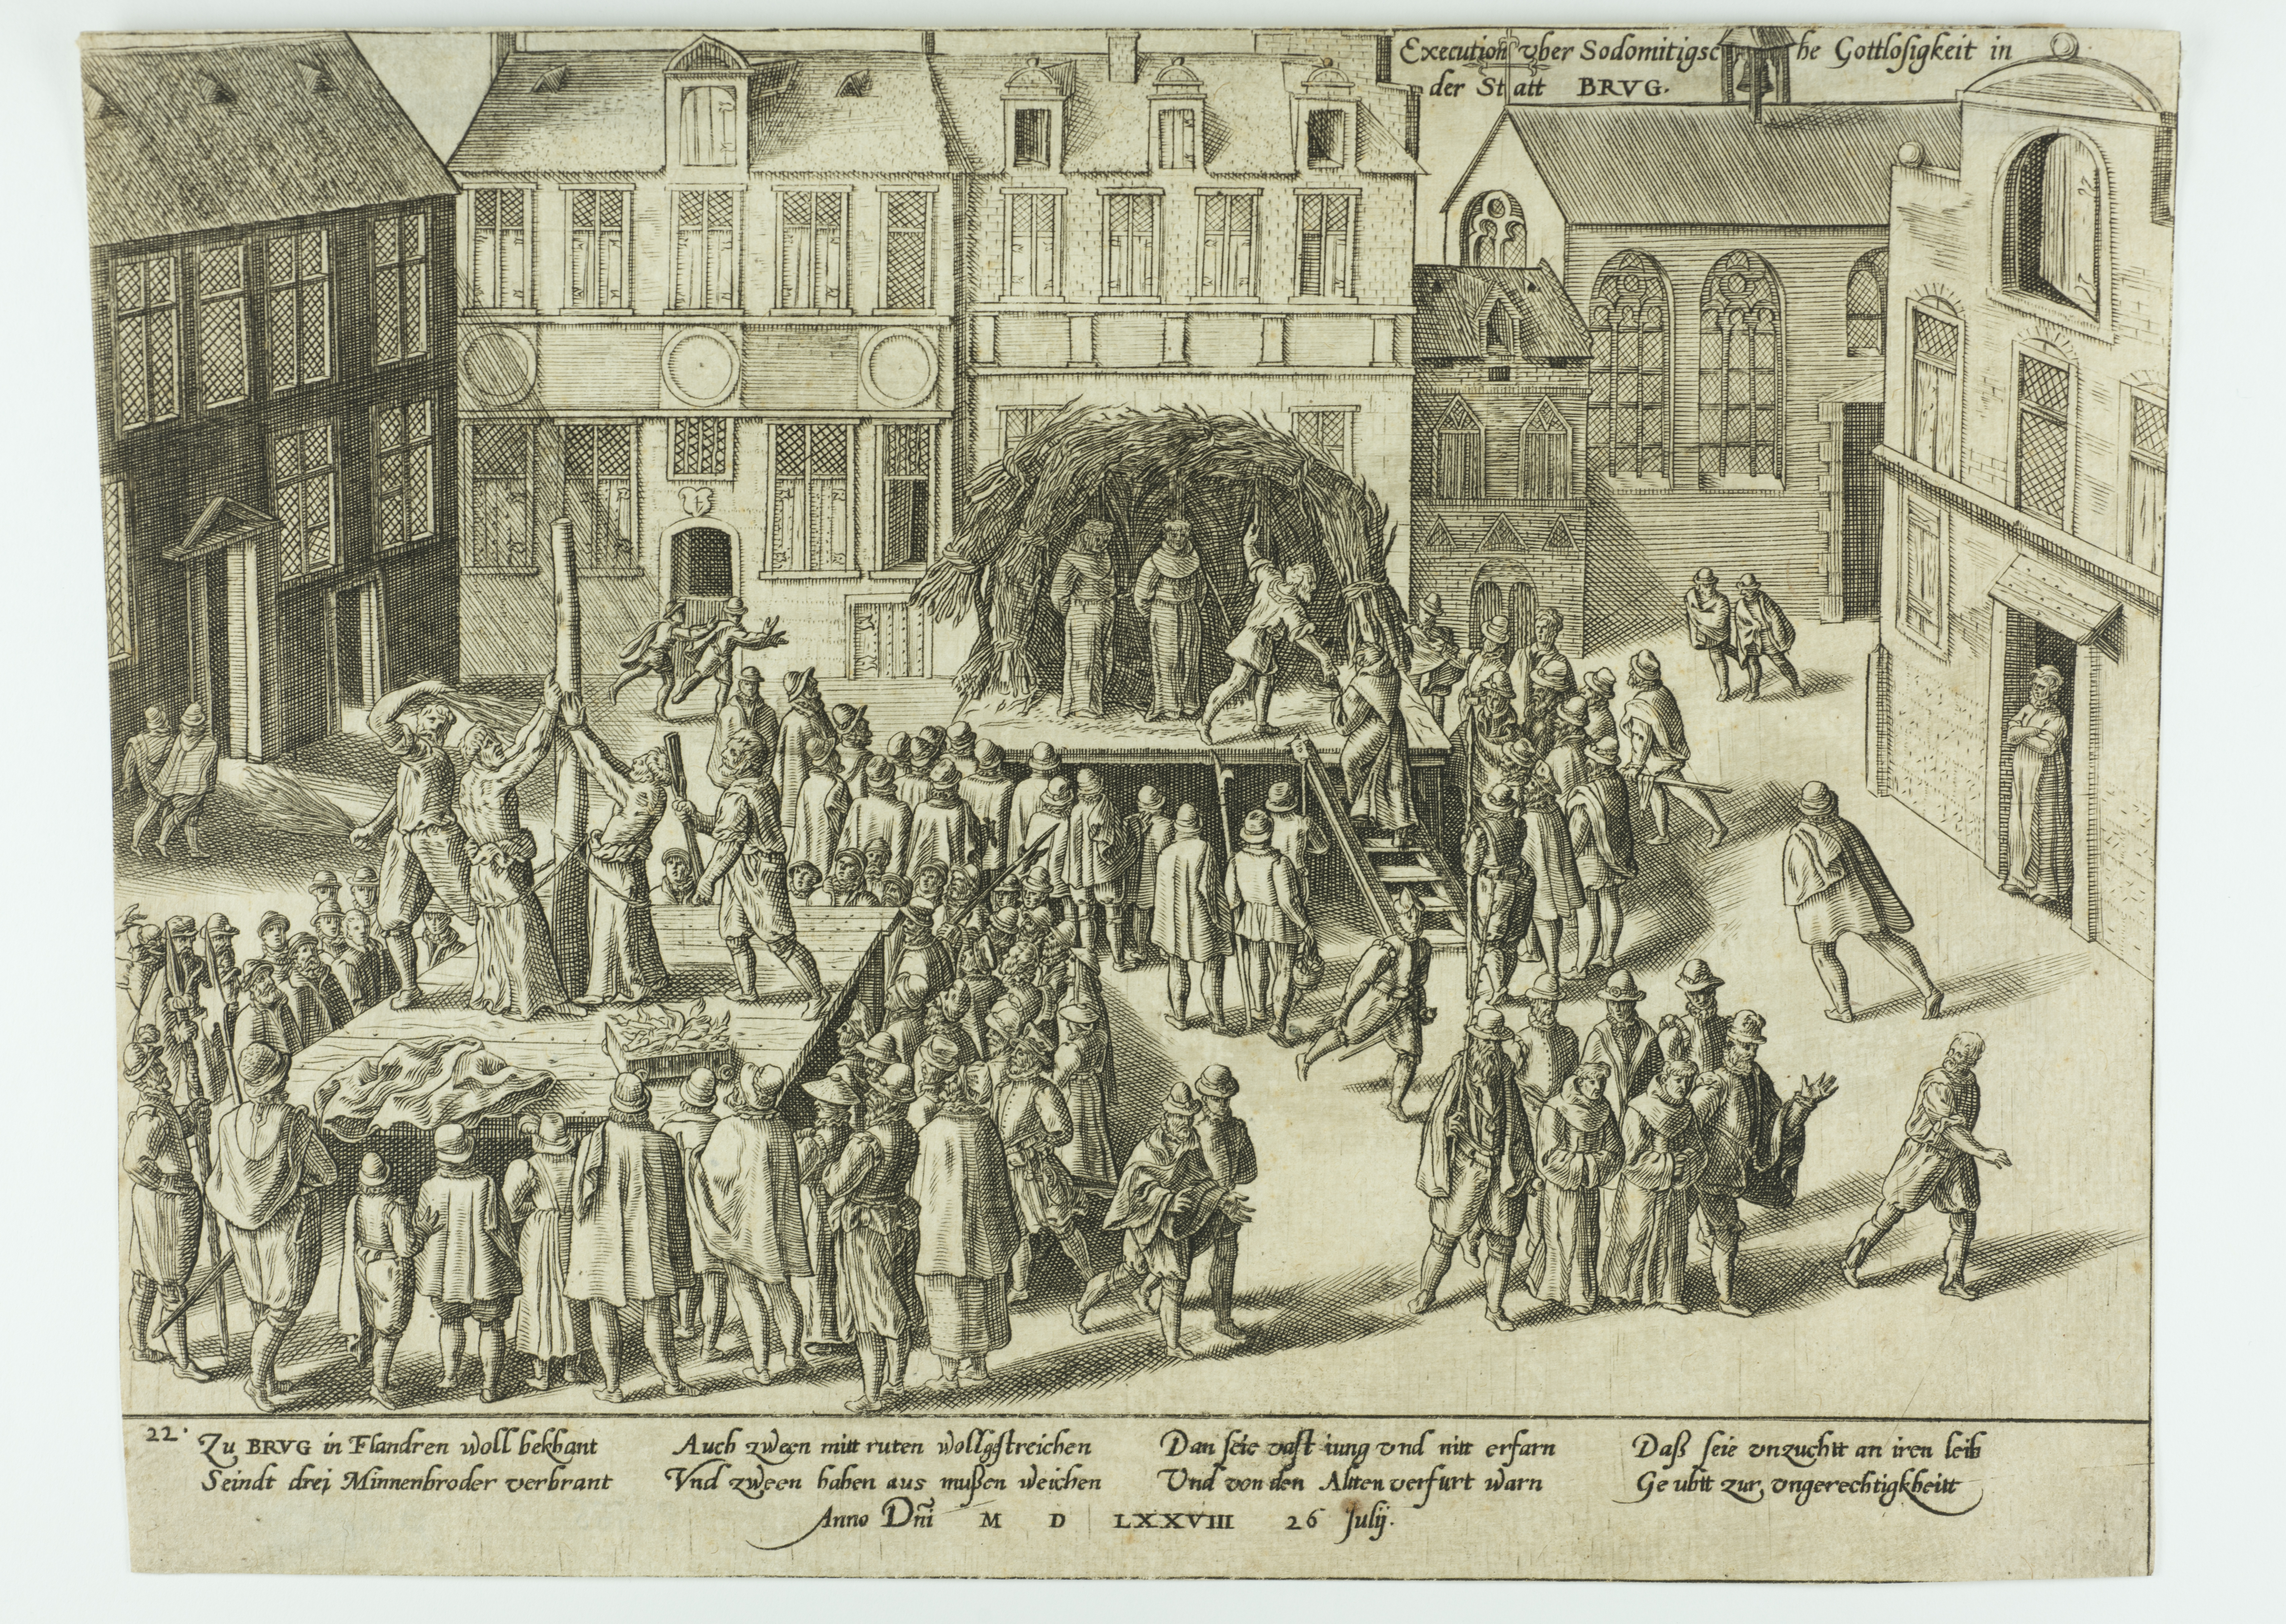 Execution vber Sodomitigsche Gottlosigkeit in
der Statt BRVG.
22. Zu BRVG in Flandren woll bekhant
Seindt drei Minnenbroder verbrant
Auch zween mitt ruten wollgstreichen
Vnd zween haben aus mußen weichen
Dan seie vast iung vnd nitt erfarn
Vnd von den Altten verfurt warn
Daß seie vnzuchtt an iren leib
Geubtt zur vngerechtigkheitt
Anno Dñi M D LXXVIII 26 Julij.